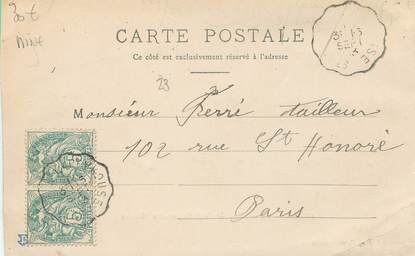 30€
CARTE POSTALE
Ce côté est exclusivement réservé à l'adresse
23
Monsieur Ferré tailleur
102 rue St Honoré
Paris